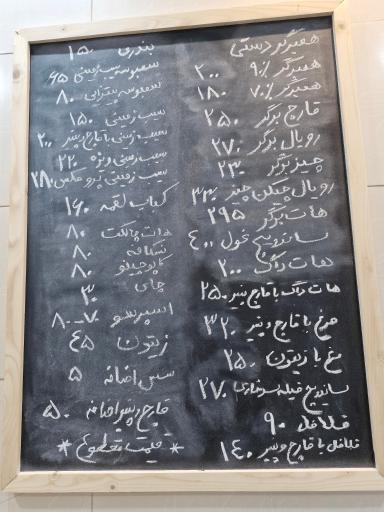 همبرگر دستی
همبرگر ۹۰٪ ۲۰۰
همبرگر ۷۰٪ ۱۸۰
قارچ برگر ۲۵۰
رویال برگر ۲۷۰
چیز برگر ۲۳۰
رویال چیکن چیز ۳۳۰
هات برگر ۲۹۵
ساندویچ غول ۴۰۰
هات داگ ۲۰۰
هات داگ با قارچ پنیر ۲۵۰
مرغ با قارچ و پنیر ۳۲۰
مرغ با زیتون ۲۵۰
ساندویچ فیله سوخاری ۲۷۰
فلافل ۹۰
فلافل با قارچ و پنیر ۱۴۰
بندری ۱۵۰
سمبوسه سیب زمینی ۶۵
سمبوسه پیتزایی ۸۰
سیب زمینی ۱۵۰
سیب زمینی با قارچ و پنیر ۲۰۰
سیب زمینی ویژه ۲۲۰
سیب زمینی پپرو مکس ۲۸۰
کباب لقمه ۱۶۰
هات چاکلت ۸۰
نسکافه ۸۰
کاپوچینو ۸۰
چای ۳۰
اسپرسو ۷۰-۸۰
زیتون ۴۵
سس اضافه ۵
قارچ و پنیر اضافه ۵۰
* قیمت مقطوع *